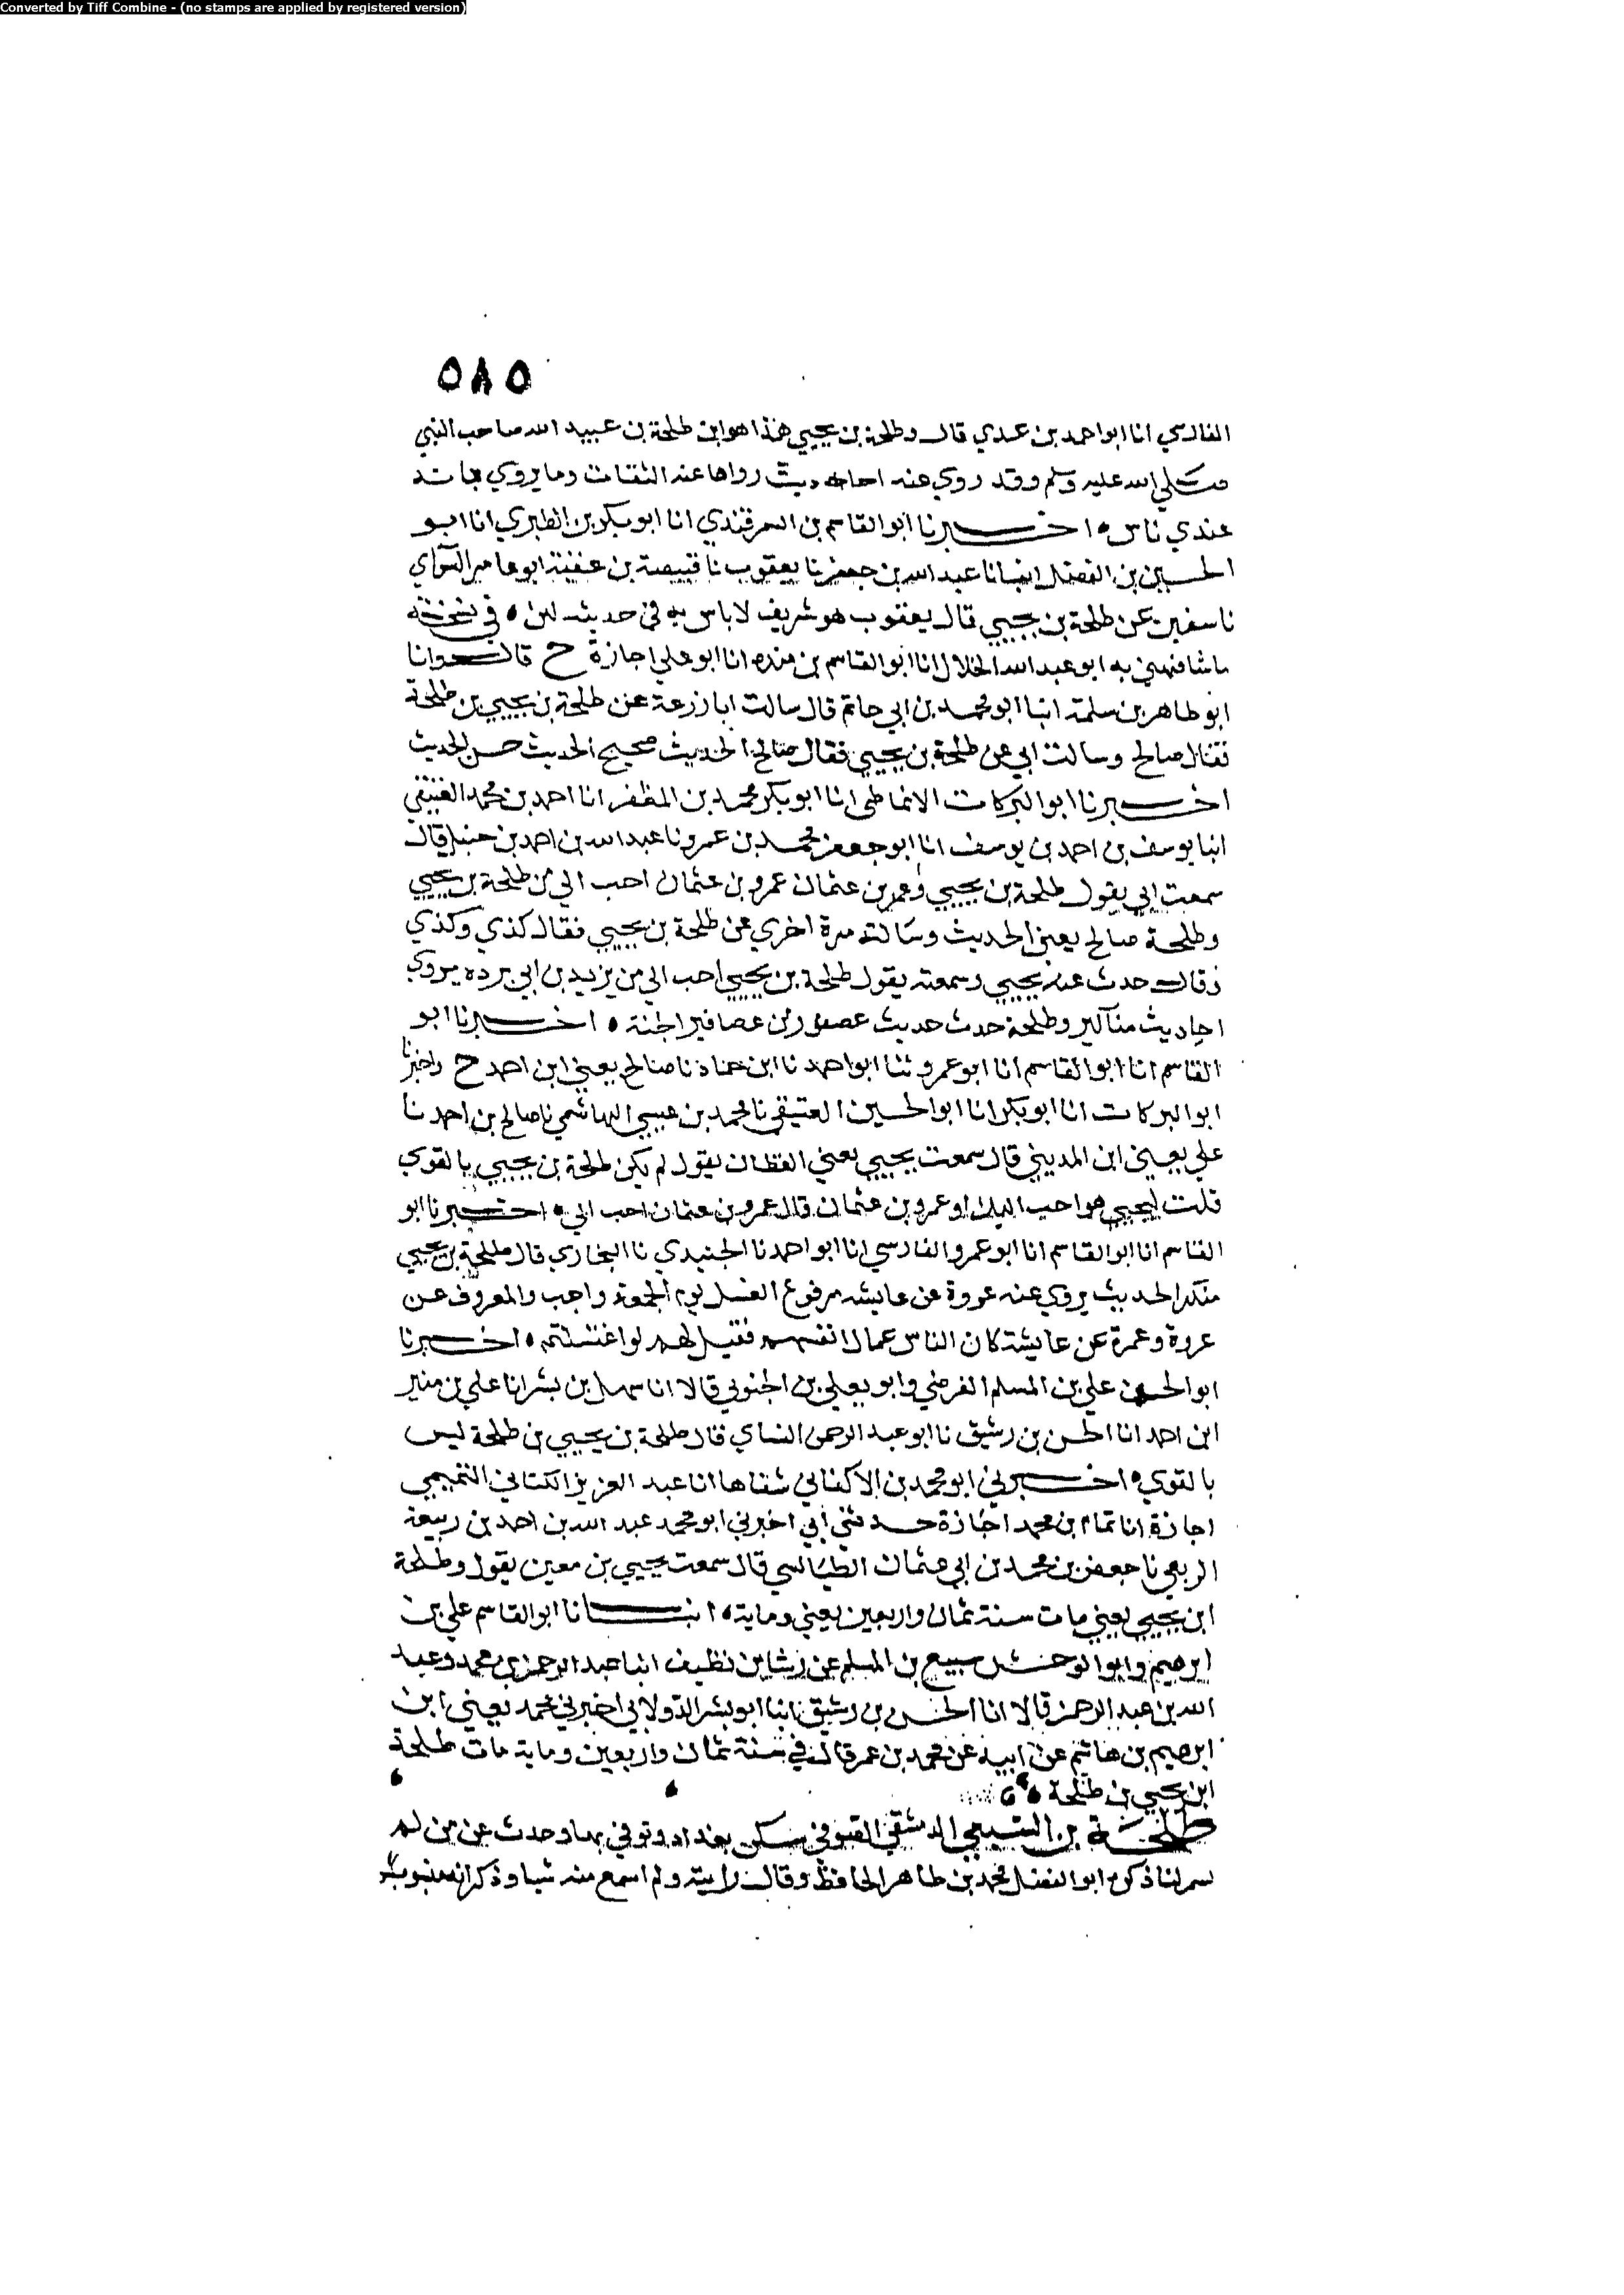 Converted by Tiff Combine - (no stamps are applied by registered version)
٥٨٥
الفارسي انا ابو احمد بن عدي قال وطلحة بن يحيي هذا هو ابن طلحة بن عبيد الله صاحب النبي
صلي الله عليه وسلم وقد روي عنه احاديث رواها عنه الثقات وما برواياته
عندي ناس ۰ اخبرنا ابو القاسم بن السمرقندي انا ابو بكر بن الطبري انا ابو
الحسين بن الفضل انبانا عبد الله بن جعفر نا يعقوب نا قبيصة بن عقبة ابو عامر السوآي
نا سفين عن طلحة بن يحيي قال يعقوب هو شريف لا باس به في حديثه لين ۰ في نسخة
ما شافهني به ابو عبد الله الخلال انا ابو القاسم بن منده انا ابو علي اجازة ح قال وانا
ابو طاهر بن سلمة انبا ابو محمد بن ابي حاتم قال سالت ابا زرعة عن طلحة بن يحيي بن طلحة
فقال صالح وسالت ابي عن طلحة بن يحيي فقال صالح الحديث صحيح الحديث حسن الحديث
اخبرنا ابو البركات الانماطي انا ابو بكر محمد بن المظفر انا احمد بن محمد العتيقي
انبا يوسف بن احمد بن يوسف انا ابو جعفر محمد بن عمرو نا عبد الله بن احمد بن حنبل قال
سمعت ابي يقول طلحة بن يحيي وعمر بن عثمان عمرو بن عثمان احب الي من طلحة بن يحيي
وطلحة صالح يعني الحديث وسالته مرة اخري عن طلحة بن يحيي فقال كذي وكذي
وقال حدث عنه يحيي وسمعته يقول طلحة بن يحيي احب الي من يزيد بن ابي برده يروي
احاديث مناكير وطلحة حدث حديث عصفور من عصافير الجنة ۰ اخبرنا ابو
القاسم انا ابو القاسم انا ابو عمرو ثنا ابو احمد نا ابن حماد نا صالح يعني ابن احمد ح واخبرنا
ابو البركات انا ابو بكر انا ابو الحسين العتيقي نا محمد بن عيسي الهاشمي نا صالح بن احمد نا
علي يعني ابن المديني قال سمعت يحيي يعني القطان يقول لم يكن طلحة بن يحيي بالقوي
قلت ليحيي هو احب اليك او عمرو بن عثمان قال عمرو بن عثمان احب الي ۰ اخبرنا ابو
القاسم انا ابو القاسم انا ابو عمرو الفارسي انا ابو احمد نا الجنيدي نا البخاري قال طلحة بن يحيي
منكر الحديث يروي عنه عروة عن عايشه مرفوع الغسل يوم الجمعة واجب والمعروف عن
عروة وعمرة عن عايشة كان الناس عمال انفسهم فقيل لهم لو اغتسلتم ۰ اخبرنا
ابو الحسن علي بن المسلم الفرضي وابو يعلي بن الحبوبي قالا انا سهل بن بشر انا علي بن منير
ابن احمد انا الحسن بن رشيق نا ابو عبد الرحمن النساي قال طلحة بن يحيي بن طلحة ليس
بالقوي ۰ اخبرني ابو محمد بن الاكفاني شفاها انا عبد العزيز الكتاني التميمي
اجازة انا تمام بن محمد اجازة حدثني ابي اخبرني ابو محمد عبد الله بن احمد بن ربيعة
الربعي نا جعفر بن محمد بن ابي عثمان الطيالسي قال سمعت يحيي بن معين يقول وطلحة
ابن يحيي يعني مات سنة ثمان واربعين يعني وماية ۰ انبانا ابو القاسم علي بن
ابرهيم وابو الوحش سبيع بن المسلم عن رشا بن نظيف انبا عبد الرحمن بن محمد وعبد
الله بن عبد الرحمن قالا انا الحسن بن رشيق انبا ابو بشر الدولابي اخبرني محمد يعني ابن
ابرهيم بن هاشم عن ابيه عن محمد بن عمر قال في سنة ثمان واربعين وماية مات طلحة
ابن يحيي بن طلحة
طلحة بن الشيعي الدمشقي الصوفي سكن بغداد وتوفي بها وحدث عن من لم
يسم لنا ذكره ابو الفضل محمد بن طاهر الحافظ وقال رايته ولم اسمع منه شيا وذكر انه منسوب